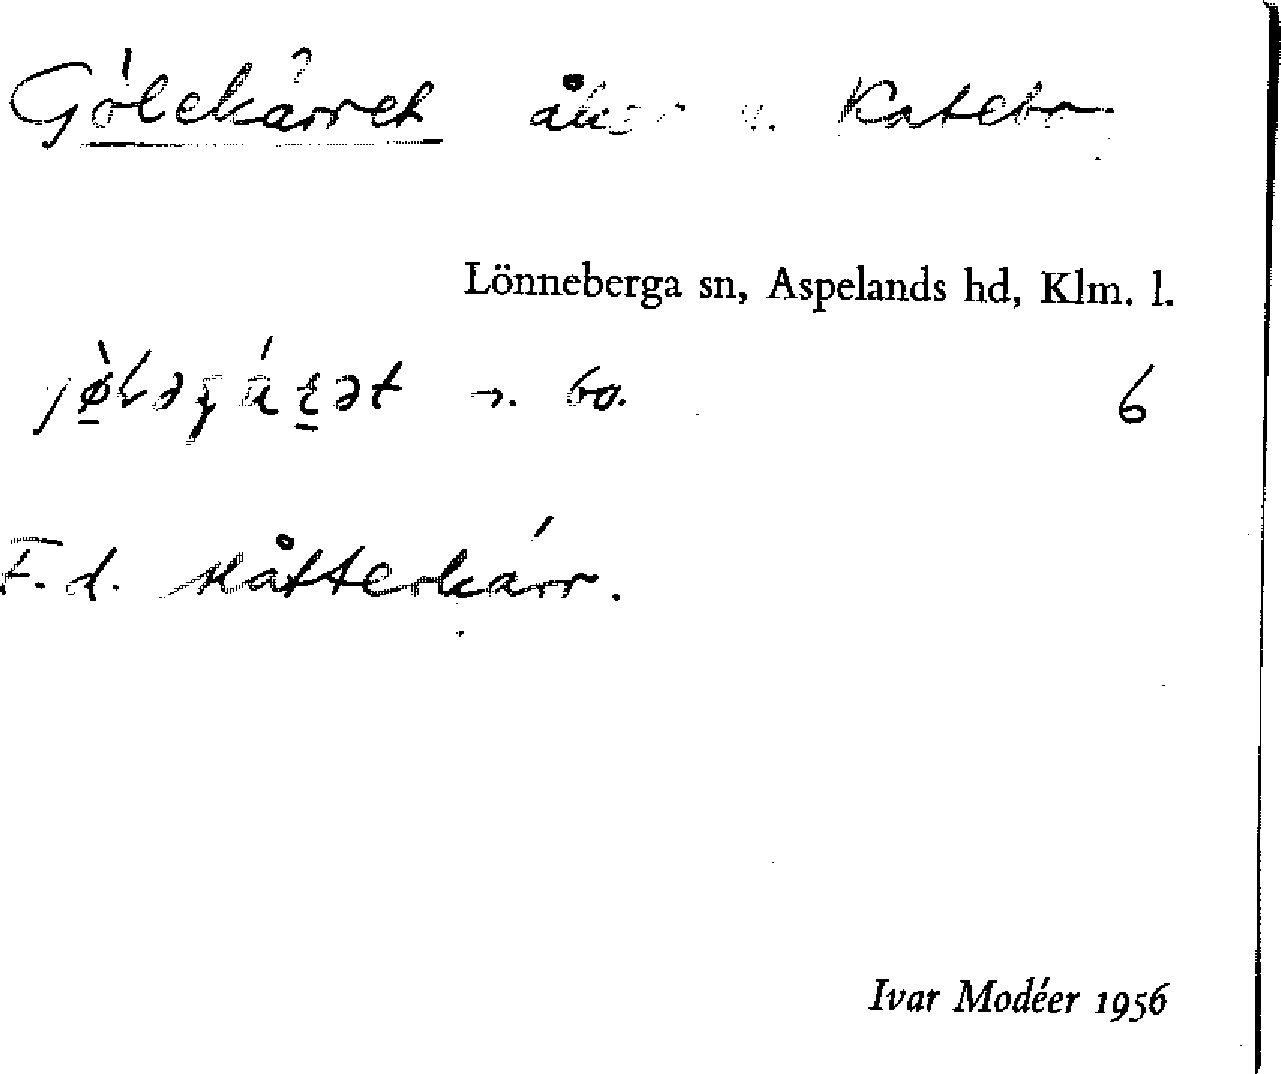 Gölekärret åker v. Katebo
Lönneberga sn, Aspelands hd, Klm. l.
6
F.d. slåtterkärr.
Ivar Modéer 1956